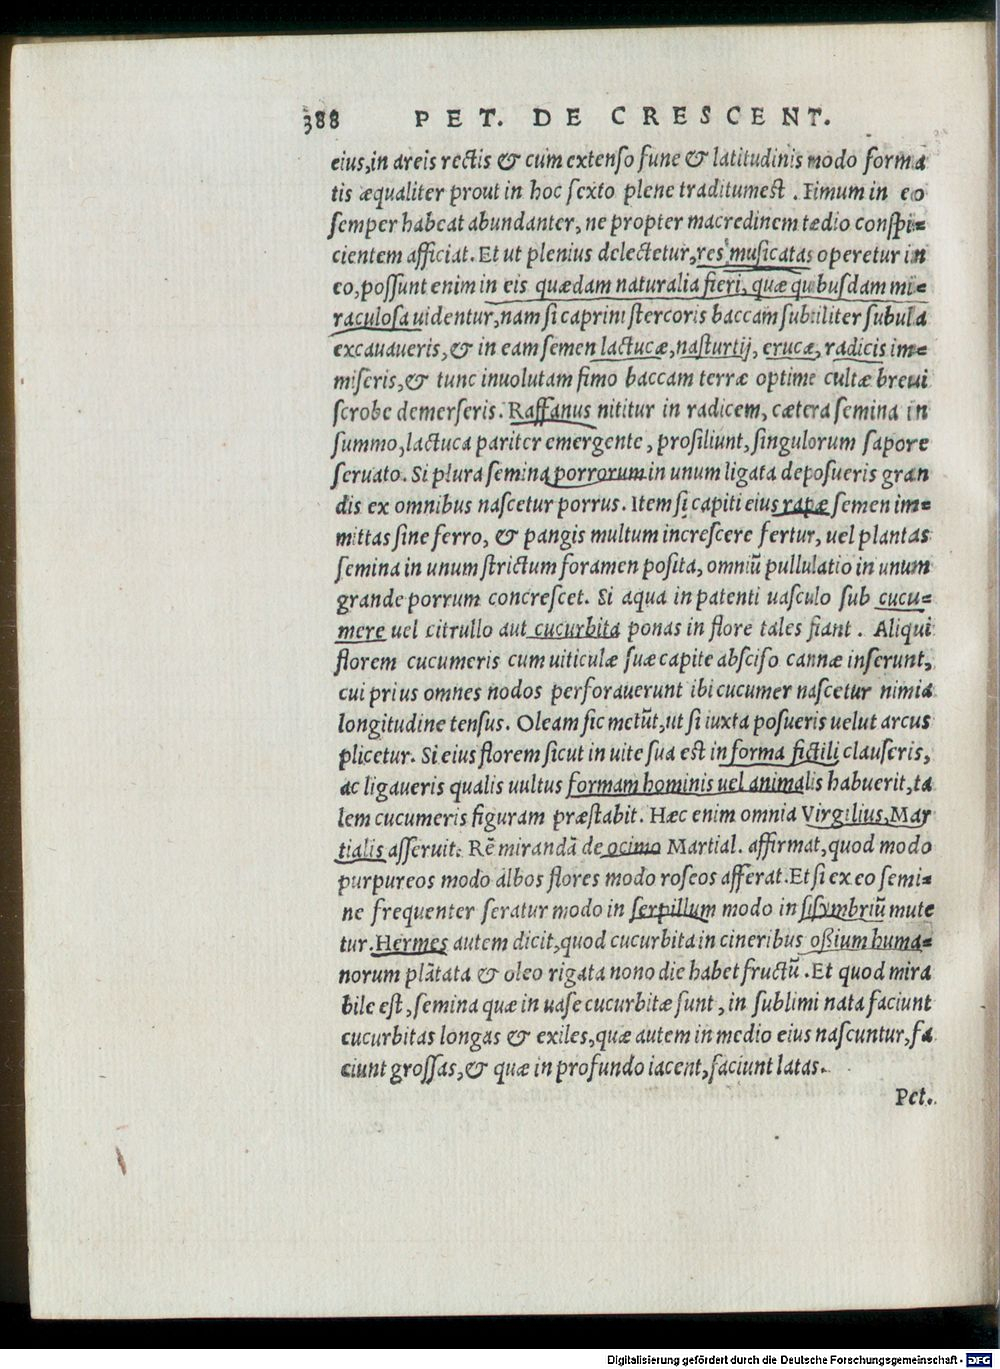 388 PET. DE CRESCENT.
eius,in areis rectis & cum extenso fune & latitudinis modo forma
tis æqualiter prout in hoc sexto plene traditumest . Fimum in eo
semper habeat abundanter, ne propter macredinem tædio conspi=
cientem afficiat. Et ut plenius delectetur, res musicatas operetur in
eo, possunt enim in eis quædam naturalia fieri, quæ qubusdam mi=
raculosa uidentur, nam si caprini stercoris baccam subtiliter subula
excauaueris, & in eam semen lactucæ, nasturtij, erucæ, radicis im=
miseris, & tunc inuolutam fimo baccam terræ optime cultæ breui
scrobe demerseris. Raffanus nititur in radicem, cætera semina in
summo, lactuca pariter emergente, prosiliunt, singulorum sapore
seruato. Si plura semina porrorum in unum ligata deposueris gran
dis ex omnibus nascetur porrus. Item si capiti eius rapæ semen im=
mittas sine ferro, & pangis multum increscere fertur, uel plantas
semina in unum strictum foramen posita, omniū pullulatio in unum
grande porrum concrescet. Si aqua in patenti uasculo sub cucu=
mere uel citrullo aut cucurbita ponas in flore tales fiant . Aliqui
florem cucumeris cum uiticulæ suæ capite absciso cannæ inserunt,
cui prius omnes nodos perforauerunt ibi cucumer nascetur nimia
longitudine tensus. Oleam sic metūt, ut si iuxta posueris uelut arcus
plicetur. Si eius florem sicut in uite sua est in forma fictili clauseris,
ac ligaueris qualis uultus formam hominis uel animalis habuerit, ta
lem cucumeris figuram præstabit. Hæc enim omnia Virgilius, Mar
tialis asseruit. Rē mirandā de ocimo Martial. affirmat, quod modo
purpureos modo albos flores modo roseos afferat. Et si ex eo semi=
ne frequenter seratur modo in serpillum modo in sisymbriū mute
tur. Hermes autem dicit, quod cucurbita in cineribus oßium huma=
norum plātata & oleo rigata nono die habet fructū . Et quod mira
bile est, semina quæ in uase cucurbitæ sunt, in sublimi nata faciunt
cucurbitas longas & exiles, quæ autem in medio eius nascuntur, fa
ciunt grossas, & quæ in profundo iacent, faciunt latas.
Pet.
Digitalisierung gefördert durch die Deutsche Forschungsgemeinschaft - DFG